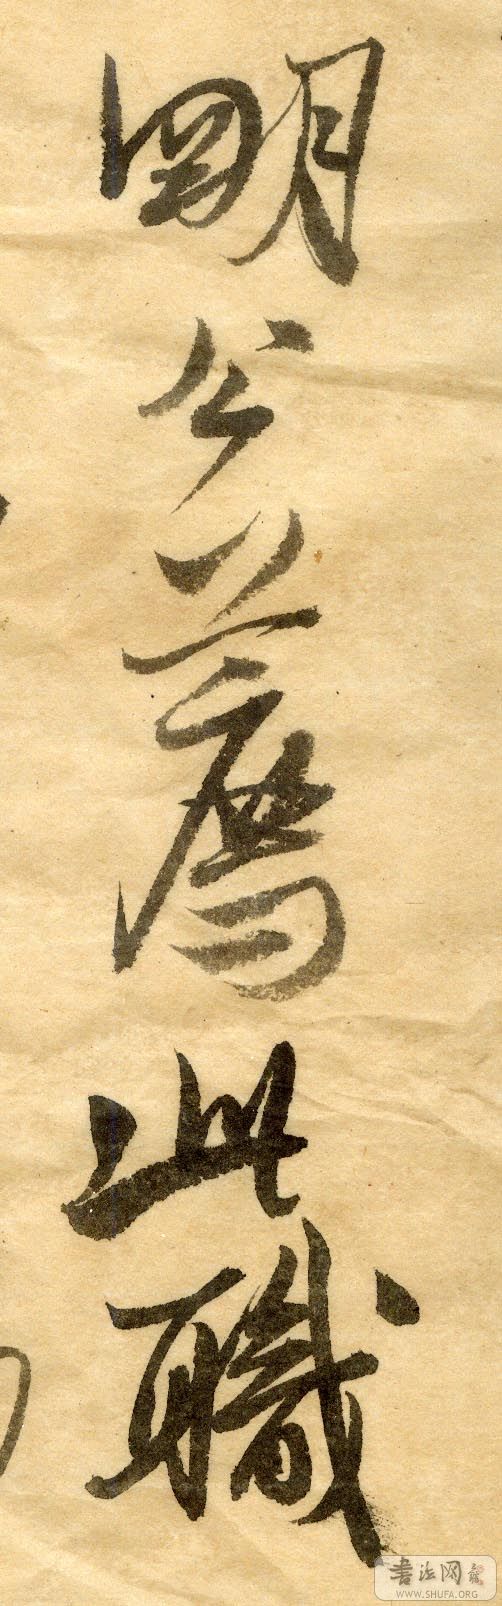 明公薦此職
書法网
WWW.SHUFA.ORG